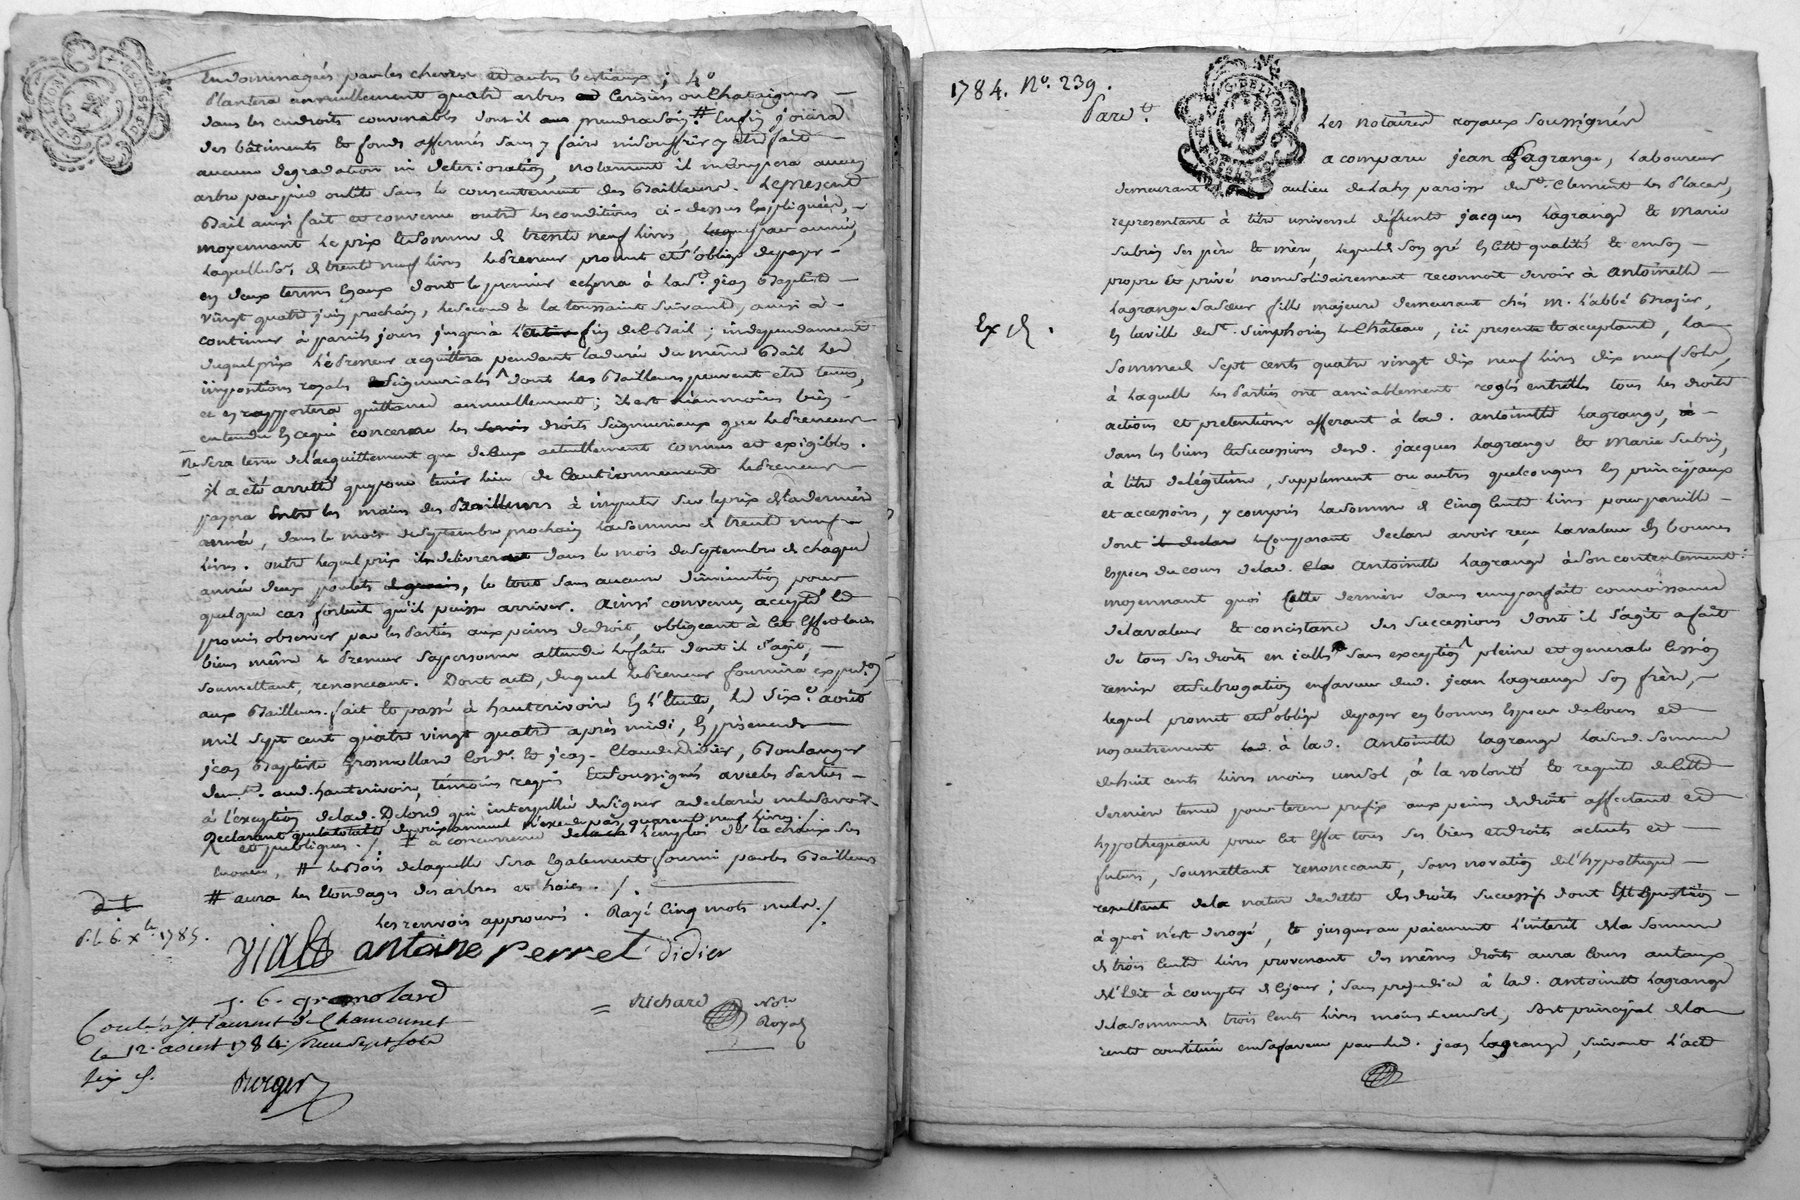 Endommagées par les chevres et autres bestiaux ; 4°
Plantera annuellement quatre arbres cerisiers ou Chataigners
dans les endroits convenables dont il prendra soin # Enfin joüira
des bâtiments & fonds affermés sans y faire ni souffrir y etre fait
aucune degradation ni deterioration, notament il ne coupera aucun
arbre par pied ou tête sans le consentement des Bailleurs. Le present
Bail ainsi fait et convenu outre les conditions ci-dessus Expliquées,
moyennant le prix & somme de trente neuf livres par année,
laquelle so. de trente neuf livres le Preneur promet et s'oblige de payer
en deux termes Egaux dont le premier echerra à la st. jean Baptiste
vingt quatre juin prochain, le second à la toussaint suivante, ainsi à
continuer à pareils jours jusqu'à fin de Bail ; independamment
duquel prix le Preneur acquittera pendant la durée du même Bail les
impositions royales & seigneuriales dont les Bailleurs peuvent etre tenus,
et en rapportera quittance annuellement ; il est néanmoins bien
entendu en ce qui concerne les droits seigneuriaux que le Preneur
ne sera tenu de l'acquittement que de ceux actuellement connus et exigibles.
il a été arretté que pour tenir lieu de Cautionnement le Preneur
payera Entre les mains des Bailleurs à imputer sur le prix de la derniere
année, dans le mois de septembre prochain la somme de trente neuf
livres. outre lequel prix il delivrera dans le mois de septembre de chaque
année deux poulets, le tout sans aucune diminution pour
quelque cas fortuit qu'il puisse arriver. Ainsi convenu, accepté &
promis observer par les Parties aux peines de droit, obligeant à Cet Effet leurs
biens même le Preneur sa personne attendu le fait dont il s'agit,
soumettant, renonceant. Dont acte, duquel le Preneur fournira expedon
aux Bailleurs. fait & passé à hauterivoire En l'Etude, le six.e août
mil sept cent quatre vingt quatre après midi, En présence de
jean Baptiste Gromollard Cord.r & jean-Claude Didier, Boulanger
demt. aud. hauterivoire, témoins requis & soussignés avec les Parties
à l'éxception de lad. Delorme qui interpellée de signer a declaré ne le savoir
Declarant que la totalité du prix annuel n'excede pas quarente neuf livres.
et publiques. /. à concurrence de l'emploi de la chaux son
# le Bois de laquelle sera Egalement fourni par les Bailleurs
# aura les Elondages des arbres et haies. /.
les renvois approuvés. Rayé Cinq mots nuls. /
d. l. 6. xbre 1785.
Viallt antoine Perret Didier
J. B. gromolard
Richard Nore Royal
Controlé a St. Laurent de Chamousset
le 12. aoust 1784. Receu sept sols
six d.
Berger
1784. N°. 239.
Pardt. les Notaires royaux soussignés
a comparu jean Lagrange, Laboureur
demeurant au lieu de Lahy paroisse de St. Clement les Places,
representant à titre universel deffunts jacques Lagrange & Marie
Subrin ses père & mère, lequel de son gré En cette qualité & en son
propre & privé nom solidairement reconnoit devoir à Antoinette
Lagrange sa sœur fille majeure demeurant chés M. l'abbé Brazier,
En la ville de St. Simphorien le Château, ici presente & acceptant, la
Ex d.
somme de sept cents quatre vingt dix neuf livres dix neuf sols,
à laquelle les Parties ont amiablement reglés entr'elles tous les droits
actions et pretentions afferant à lad. Antoinette Lagrange,
dans les biens & successions desd. jacques Lagrange & Marie Subrin,
à titre de légitime, supplement ou autres quelconques En principaux
et accessoires, y compris la somme de Cinq Cents livres pour pareille
dont il declare le Comparant declare avoir reçu la valeur En bonnes
Espèces du cours de lad. Antoinette Lagrange à son contentement :
moyennant quoi Cette derniere dans une parfaite connoissance
de la valeur & concistance des successions dont il s'agit a fait
de tous ses droits en icelles sans exception pleine et generale Cession
remise & subrogation en faveur dud. jean Lagrange son frère,
lequel promet & s'oblige de payer en bonnes Espèces de Cours et
non autrement à lad. Antoinette Lagrange lad. somme
de huit cents livres moins un sol, à la volonté & requete de Cette
derniere tenue pour terme prefix aux peines de droit affectant et
hypothequant pour Cet Effet tous ses biens et droits actuels et
futurs, soumettant renonceant, sans novation de l'hypotheque
resultante de la nature de dette des droits successifs dont Est Question
à quoi n'est derogé, & jusques au paiement l'interet de la somme
de trois Cents livres provenant des mêmes droits aura Cours au taux
de l'Edit à compter de Ce jour ; sans prejudice à lad. Antoinette Lagrange
de la somme de trois Cents livres moins un sol, sort principal de la
rente constituée en sa faveur par led. jean Lagrange, suivant l'acte